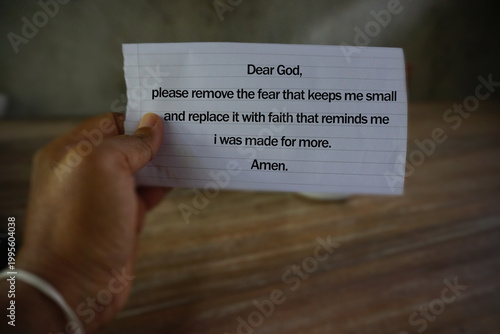 Dear God,
please remove the fear that keeps me small
and replace it with faith that reminds me
i was made for more.
Amen.
Adobe Stock | #1995604038